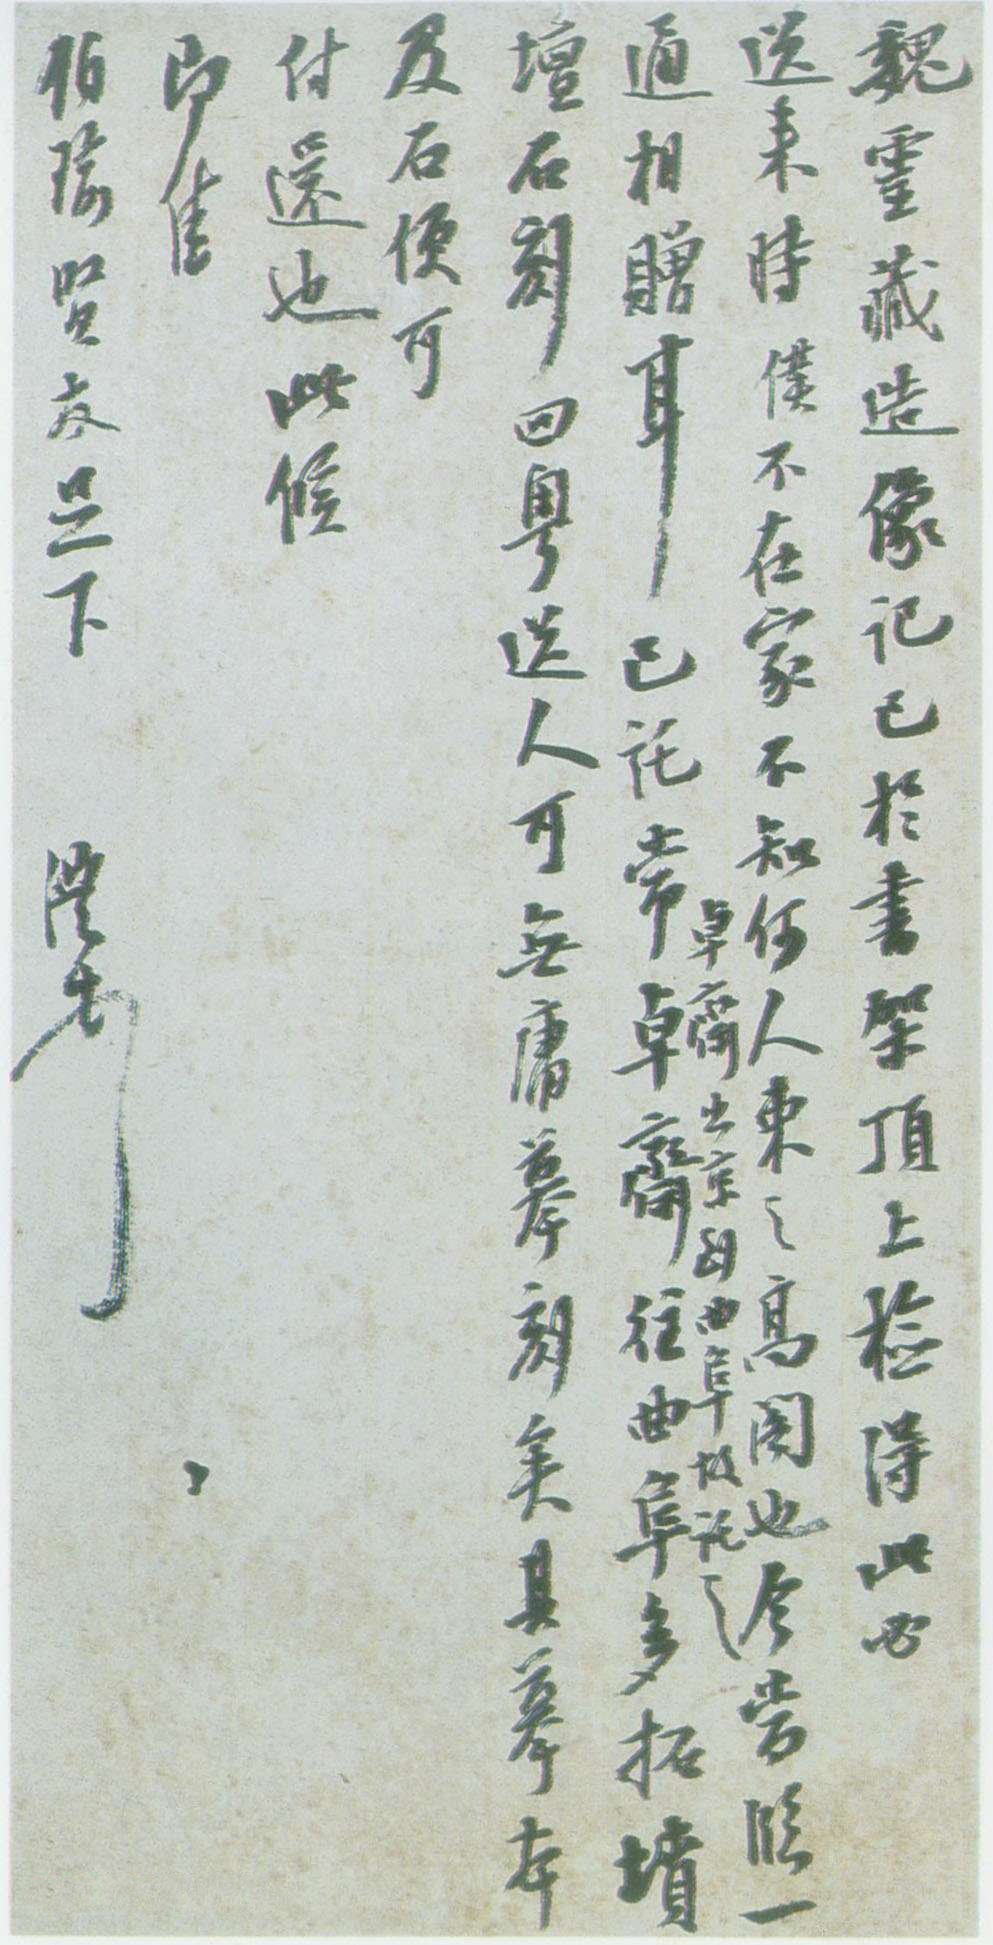 魏靈藏造像記已於書架頂上檢得此必
送来時僕不在家不知何人束之高閣也今當臨一
通相贈耳已託常卓齋往曲阜多拓墳
卓齋出京到曲阜故託之
壇石刻回粵送人可無庸摹刻矣其摹本
及石便可
付還也此候
即佳
伯瑜賢友足下 澧書